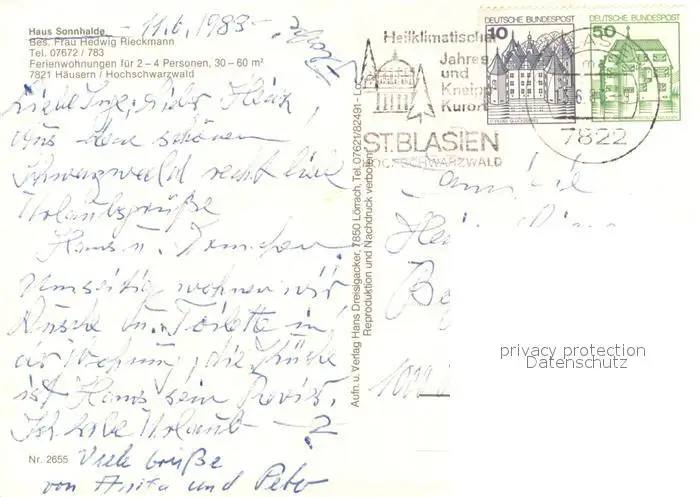 Haus Sonnhalde - 11.6.1983 -
Bes. Frau Hedwig Rieckmann
Tel. 07672 / 783
Ferienwohnungen für 2 – 4 Personen, 30 – 60 m²
7821 Häusern / Hochschwarzwald
Liebe Inge, lieber
Aus dem schönen
Schwarzwald recht liebe
Urlaubsgrüße
Hans u.
Umseitig wohnen wir
Dusche u. Toilette in
der Wohnung, die Küche
ist Hans sein Revier.
Ich habe Urlaub -
Nr. 2655 Viele Grüße
von Anita und Peter
Aufn. u. Verlag Hans Dreisigacker, 7850 Lörrach, Tel. 07621/82491
Reproduktion und Nachdruck verboten
Heilklimatischer
Jahres
und
Kneipp
Kurort
ST. BLASIEN
HOCHSCHWARZWALD
DEUTSCHE BUNDESPOST
10
DEUTSCHE BUNDESPOST
50
7822
Familie
privacy protection
Datenschutz